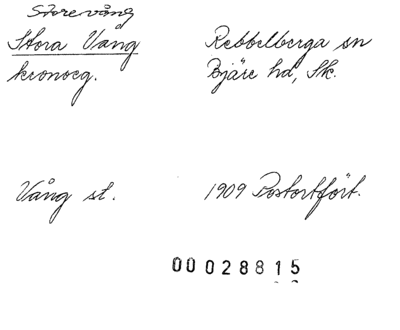 Storevång
Stora Vång
kronoeg.
Rebbelberga sn
Bjäre hd, Sk.
Vång st.
1909 Postortfört.
00028815